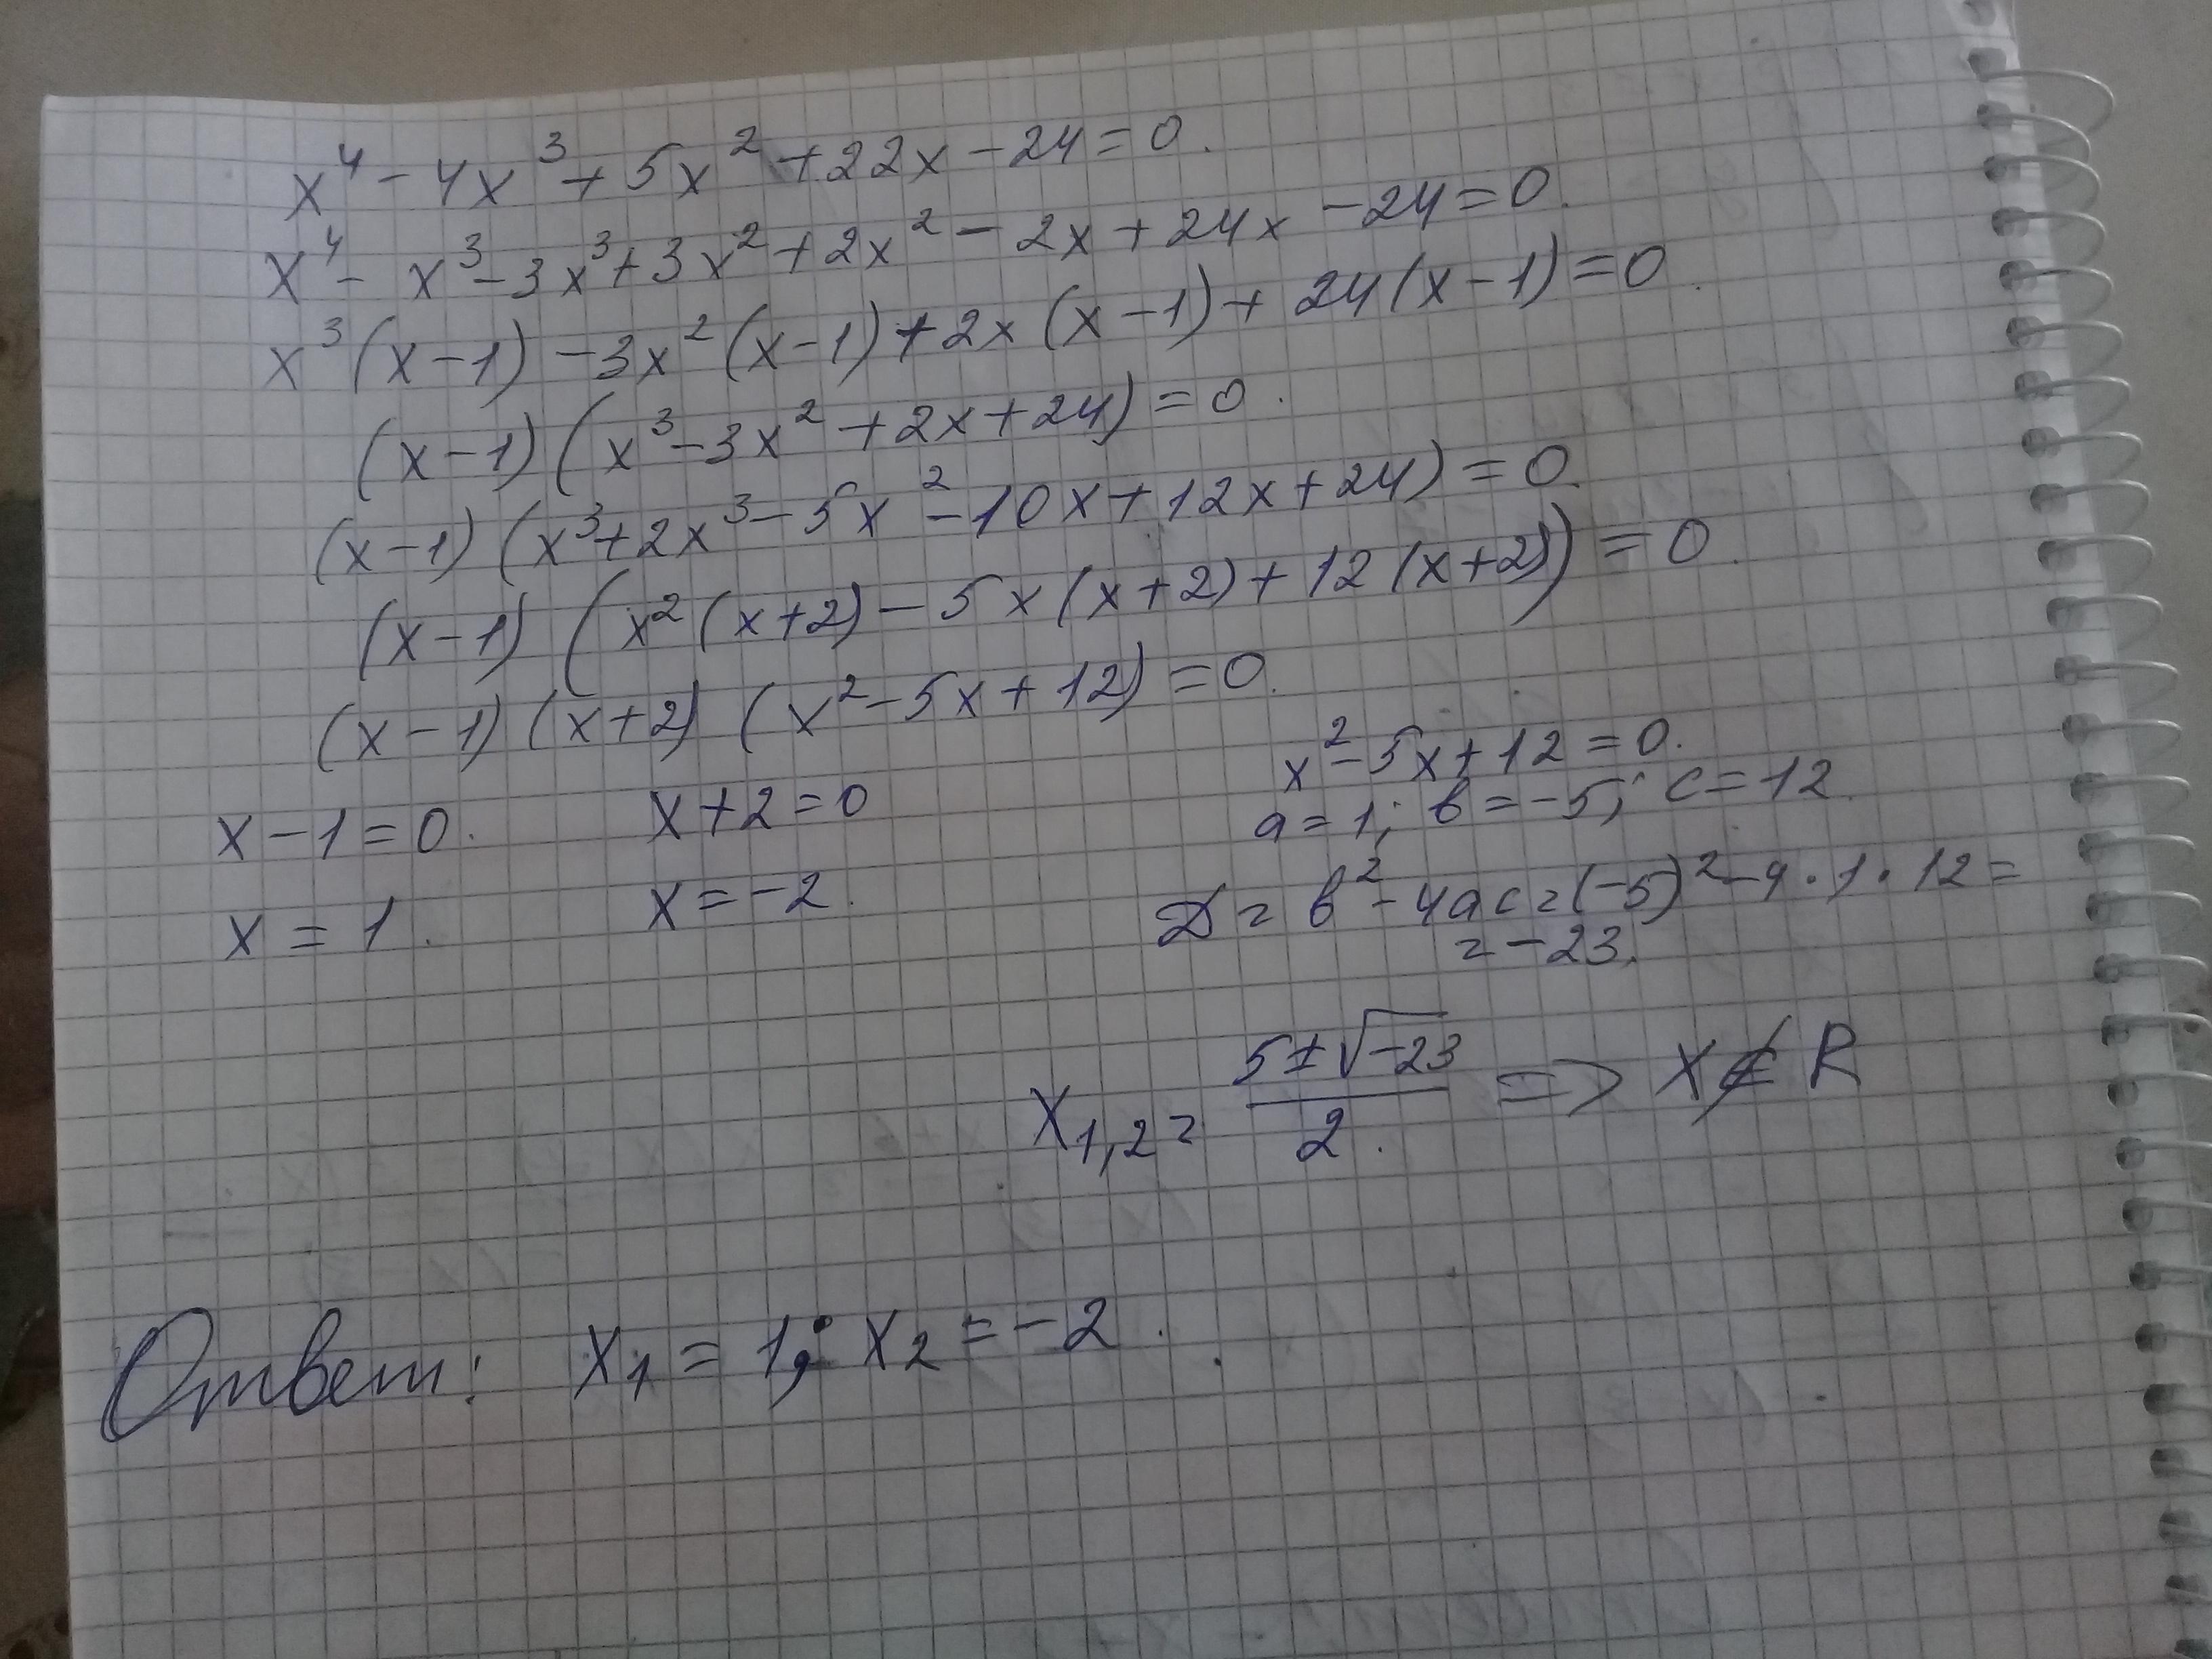 x⁴ - 4x³ + 5x² + 22x - 24 = 0.
x⁴ - x³ - 3x³ + 3x² + 2x² - 2x + 24x - 24 = 0.
x³(x-1) - 3x²(x-1) + 2x(x-1) + 24(x-1) = 0.
(x-1)(x³ - 3x² + 2x + 24) = 0.
(x-1)(x³ + 2x³ - 5x² - 10x + 12x + 24) = 0.
(x-1)(x²(x+2) - 5x(x+2) + 12(x+2)) = 0.
(x-1)(x+2)(x² - 5x + 12) = 0.
x - 1 = 0. x + 2 = 0 x² - 5x + 12 = 0.
a = 1; в = -5; c = 12.
x = 1. x = -2. D = в² - 4ac = (-5)² - 4·1·12 =
= -23.
x₁,₂ = (5 ± √-23)/2. => x ∉ R
Ответ: x₁ = 1; x₂ = -2.